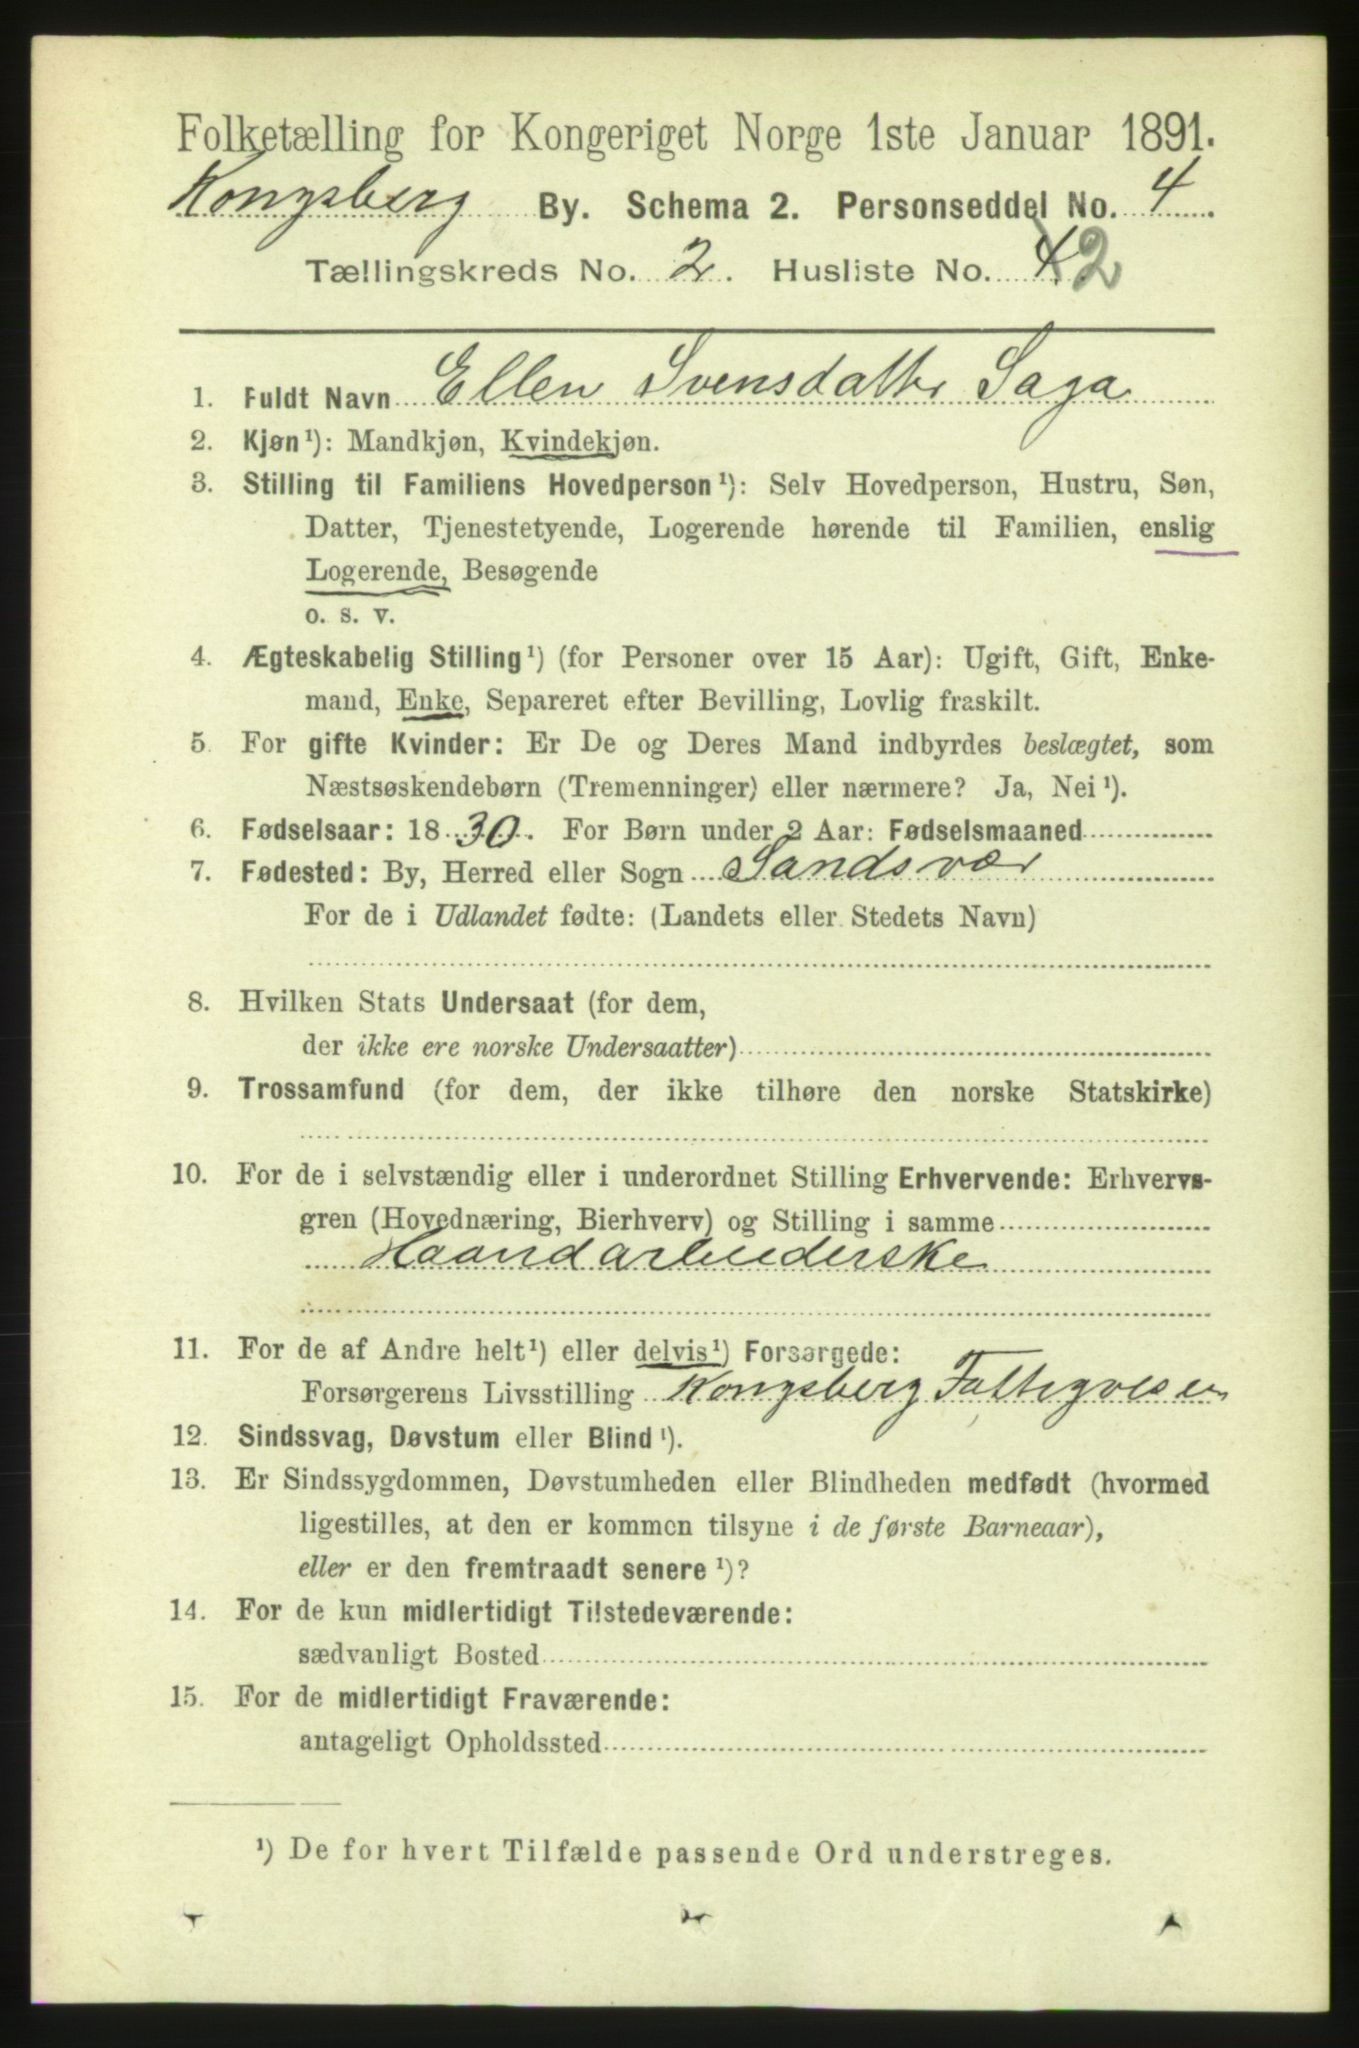 Folketælling for Kongeriget Norge 1ste Januar 1891.
Kongsberg By. Schema 2. Personseddel No. 4
Tællingskreds No. 2. Husliste No. 4 2
1. Fuldt Navn Ellen Svensdatter Saga
2. Kjøn¹): Mandkjøn, Kvindekjøn.
3. Stilling til Familiens Hovedperson¹): Selv Hovedperson, Hustru, Søn,
Datter, Tjenestetyende, Logerende hørende til Familien, enslig
Logerende, Besøgende
o. s. v.
4. Ægteskabelig Stilling¹) (for Personer over 15 Aar): Ugift, Gift, Enke-
mand, Enke, Separeret efter Bevilling, Lovlig fraskilt.
5. For gifte Kvinder: Er De og Deres Mand indbyrdes beslægtet, som
Næstsøskendebørn (Tremenninger) eller nærmere? Ja, Nei¹).
6. Fødselsaar: 1830. For Børn under 2 Aar: Fødselsmaaned
7. Fødested: By, Herred eller Sogn Sandsvær
For de i Udlandet fødte: (Landets eller Stedets Navn)
8. Hvilken Stats Undersaat (for dem,
der ikke ere norske Undersaatter)
9. Trossamfund (for dem, der ikke tilhøre den norske Statskirke)
10. For de i selvstændig eller i underordnet Stilling Erhvervende: Erhvervs-
gren (Hovednæring, Bierhverv) og Stilling i samme
Haandarbeiderske
11. For de af Andre helt¹) eller delvis¹) Forsørgede:
Forsørgerens Livsstilling Kongsberg Fattigvesen
12. Sindssvag, Døvstum eller Blind¹).
13. Er Sindssygdommen, Døvstumheden eller Blindheden medfødt (hvormed
ligestilles, at den er kommen tilsyne i de første Barneaar),
eller er den fremtraadt senere¹)?
14. For de kun midlertidigt Tilstedeværende:
sædvanligt Bosted
15. For de midlertidigt Fraværende:
antageligt Opholdssted
¹) De for hvert Tilfælde passende Ord understreges.